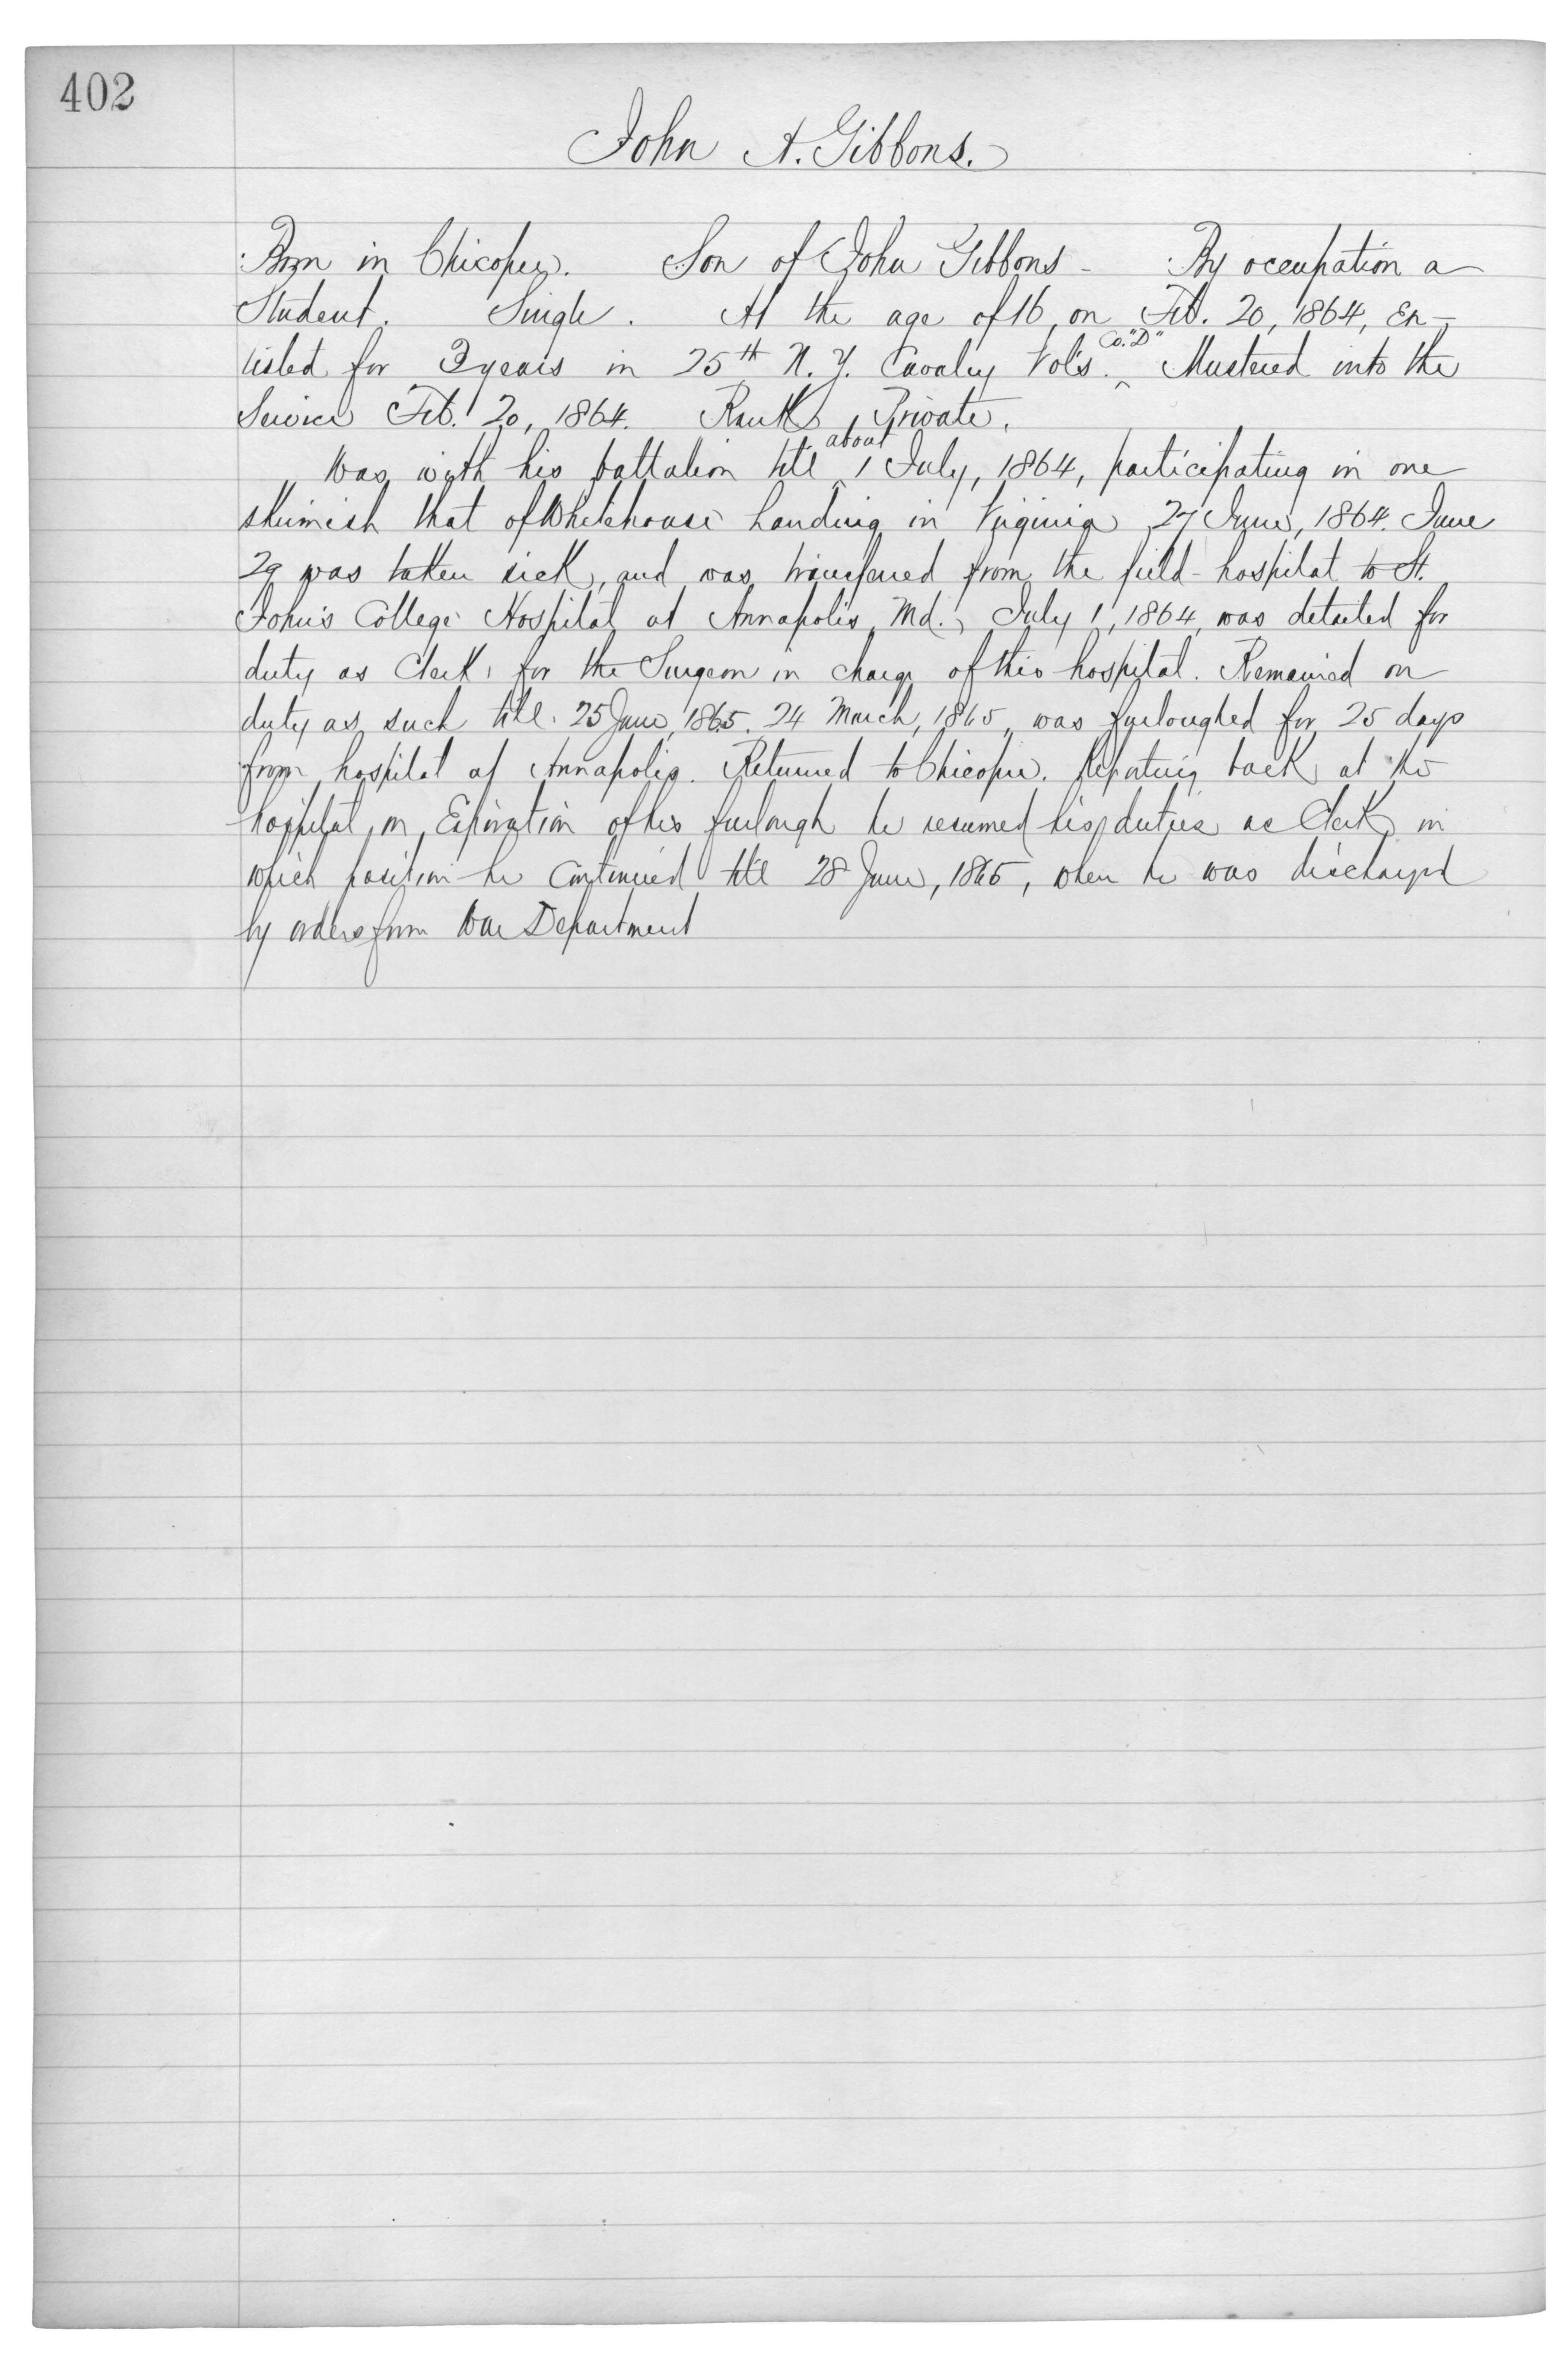 402
John A. Gibbons.
Born in Chicopee. Son of John Gibbons - By occupation a
Student. Single. At the age of 16, on Feb. 20, 1864, En-
listed for 3 years in 25th N. Y. Cavalry Vols. Co. "D" Mustered into the
Service Feb. 20, 1864. Rank, Private.
Was with his battalion till about 1 July, 1864, participating in one
skirmish that of Whitehouse Landing in Virginia 27 June, 1864. June
29 was taken sick, and was transferred from the field-hospital to St.
John's College Hospital at Annapolis, Md., July 1, 1864, was detailed for
duty as Clerk, for the Surgeon in charge of this hospital. Remained on
duty as such till 25 June, 1865. 24 March, 1865, was furloughed for 25 days
from hospital at Annapolis. Returned to Chicopee. Reporting back at the
hospital, on Expiration of his furlough he resumed his duties as Clerk, in
which position he continued till 28 June, 1865, when he was discharged
by orders from War Department